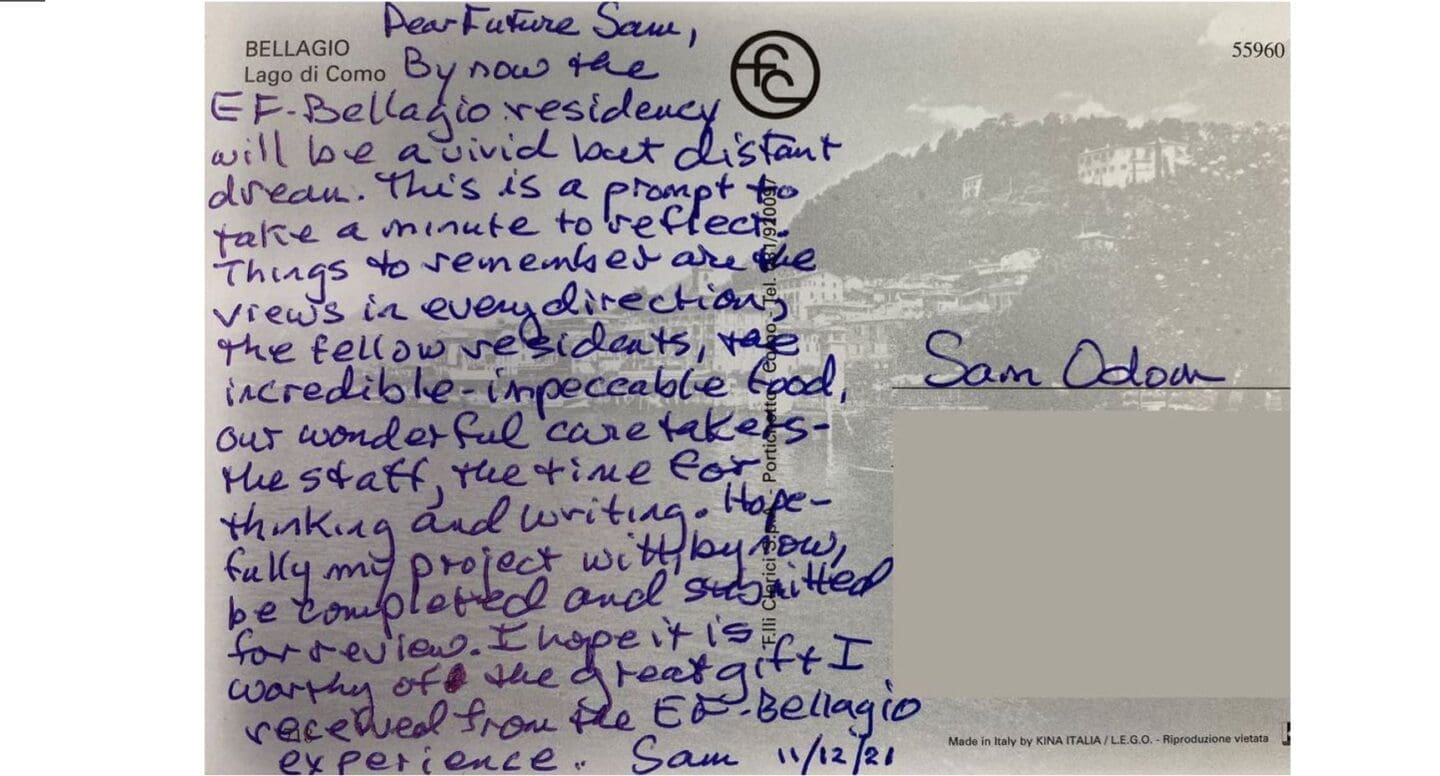 BELLAGIO
Lago di Como
55960
fc
Dear Future Sam,
By now the
EF-Bellagio residency
will be a vivid but distant
dream. This is a prompt to
take a minute to reflect.
Things to remember are the
views in every direction,
the fellow residents, the
incredible-impeccable food,
our wonderful caretakers-
the staff, the time for
thinking and writing. Hope-
fully my project will, by now,
be completed and submitted
for review. I hope it is
worthy of the great gift I
received from the EF-Bellagio
experience. Sam 11/12/21
F.lli Clerici S.p.A. - Portichetto Como - Tel. 031/920097
Sam Odom
Made in Italy by KINA ITALIA / L.E.G.O. - Riproduzione vietata